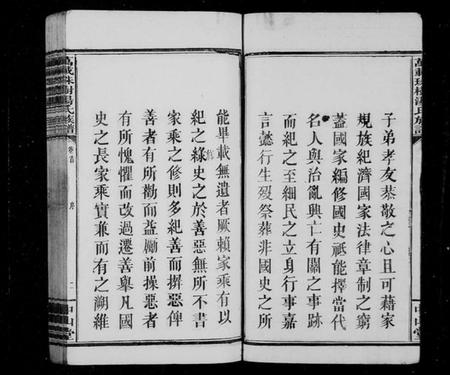 子弟孝友恭敬之心且可藉家
規族紀濟國家法律章制之窮
蓋國家編修國史祇能擇當代
名人與治亂興亡有關之事跡
而紀之至細民之立身行事嘉
言懿行生歿祭葬非國史之所
能畢載無遺者厥賴家乘有以
紀之緣史之於善惡無所不書
家乘之修則多紀善而摒惡俾
善者有所勸而益勵前操惡者
有所愧懼而改過遷善舉凡國
史之長家乘實兼而有之溯維
萬載
族譜
卷首
序
二